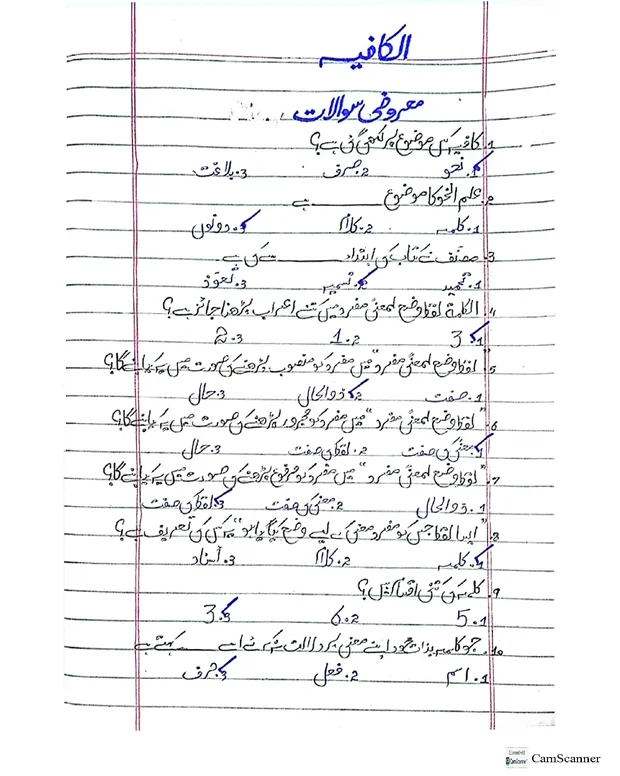 الکافیہ
معروضی سوالات
1. کافیہ کس موضوع پر لکھی گئی ہے؟
1. نحو 2. صرف 3. بلاغت
2. علم النحو کا موضوع ______ ہے
1. کلمہ 2. کلام 3. دونوں
3. مصنف نے کتاب کی ابتداء ______ سے کی ہے۔
1. تحمید 2. تسمیہ 3. تعوذ
4. الکلمۃ لفظ وضع لمعنی مفرد میں کتنے اعراب پڑھنا جائز ہے؟
1. 3 2. 1 3. 2
5. "لفظ وضع لمعنی مفرد" میں مفرد کو منصوب پڑھنے کی صورت میں یہ کیا بنے گا؟
1. صفت 2. ذوالحال 3. حال
6. "لفظ وضع لمعنی مفرد" میں مفرد کو مجرور پڑھنے کی صورت میں یہ کیا بنے گا؟
1. معنی کی صفت 2. لفظ کی صفت 3. حال
7. "لفظ وضع لمعنی مفرد" میں مفرد کو مرفوع پڑھنے کی صورت میں یہ کیا بنے گا؟
1. ذوالحال 2. معنی کی صفت 3. لفظ کی صفت
8. "ایسا لفظ جس کو مفرد معنی کے لیے وضع کیا گیا ہو" یہ کس کی تعریف ہے؟
1. کلمہ 2. کلام 3. اسناد
9. کلمہ کی کتنی اقسام ہیں؟
1. 5 2. 6 3. 3
10. جو کلمہ بذات خود اپنے معنی پر دلالت نہ کرے اسے ______ کہتے ہے
1. اسم 2. فعل 3. حرف
CamScanner